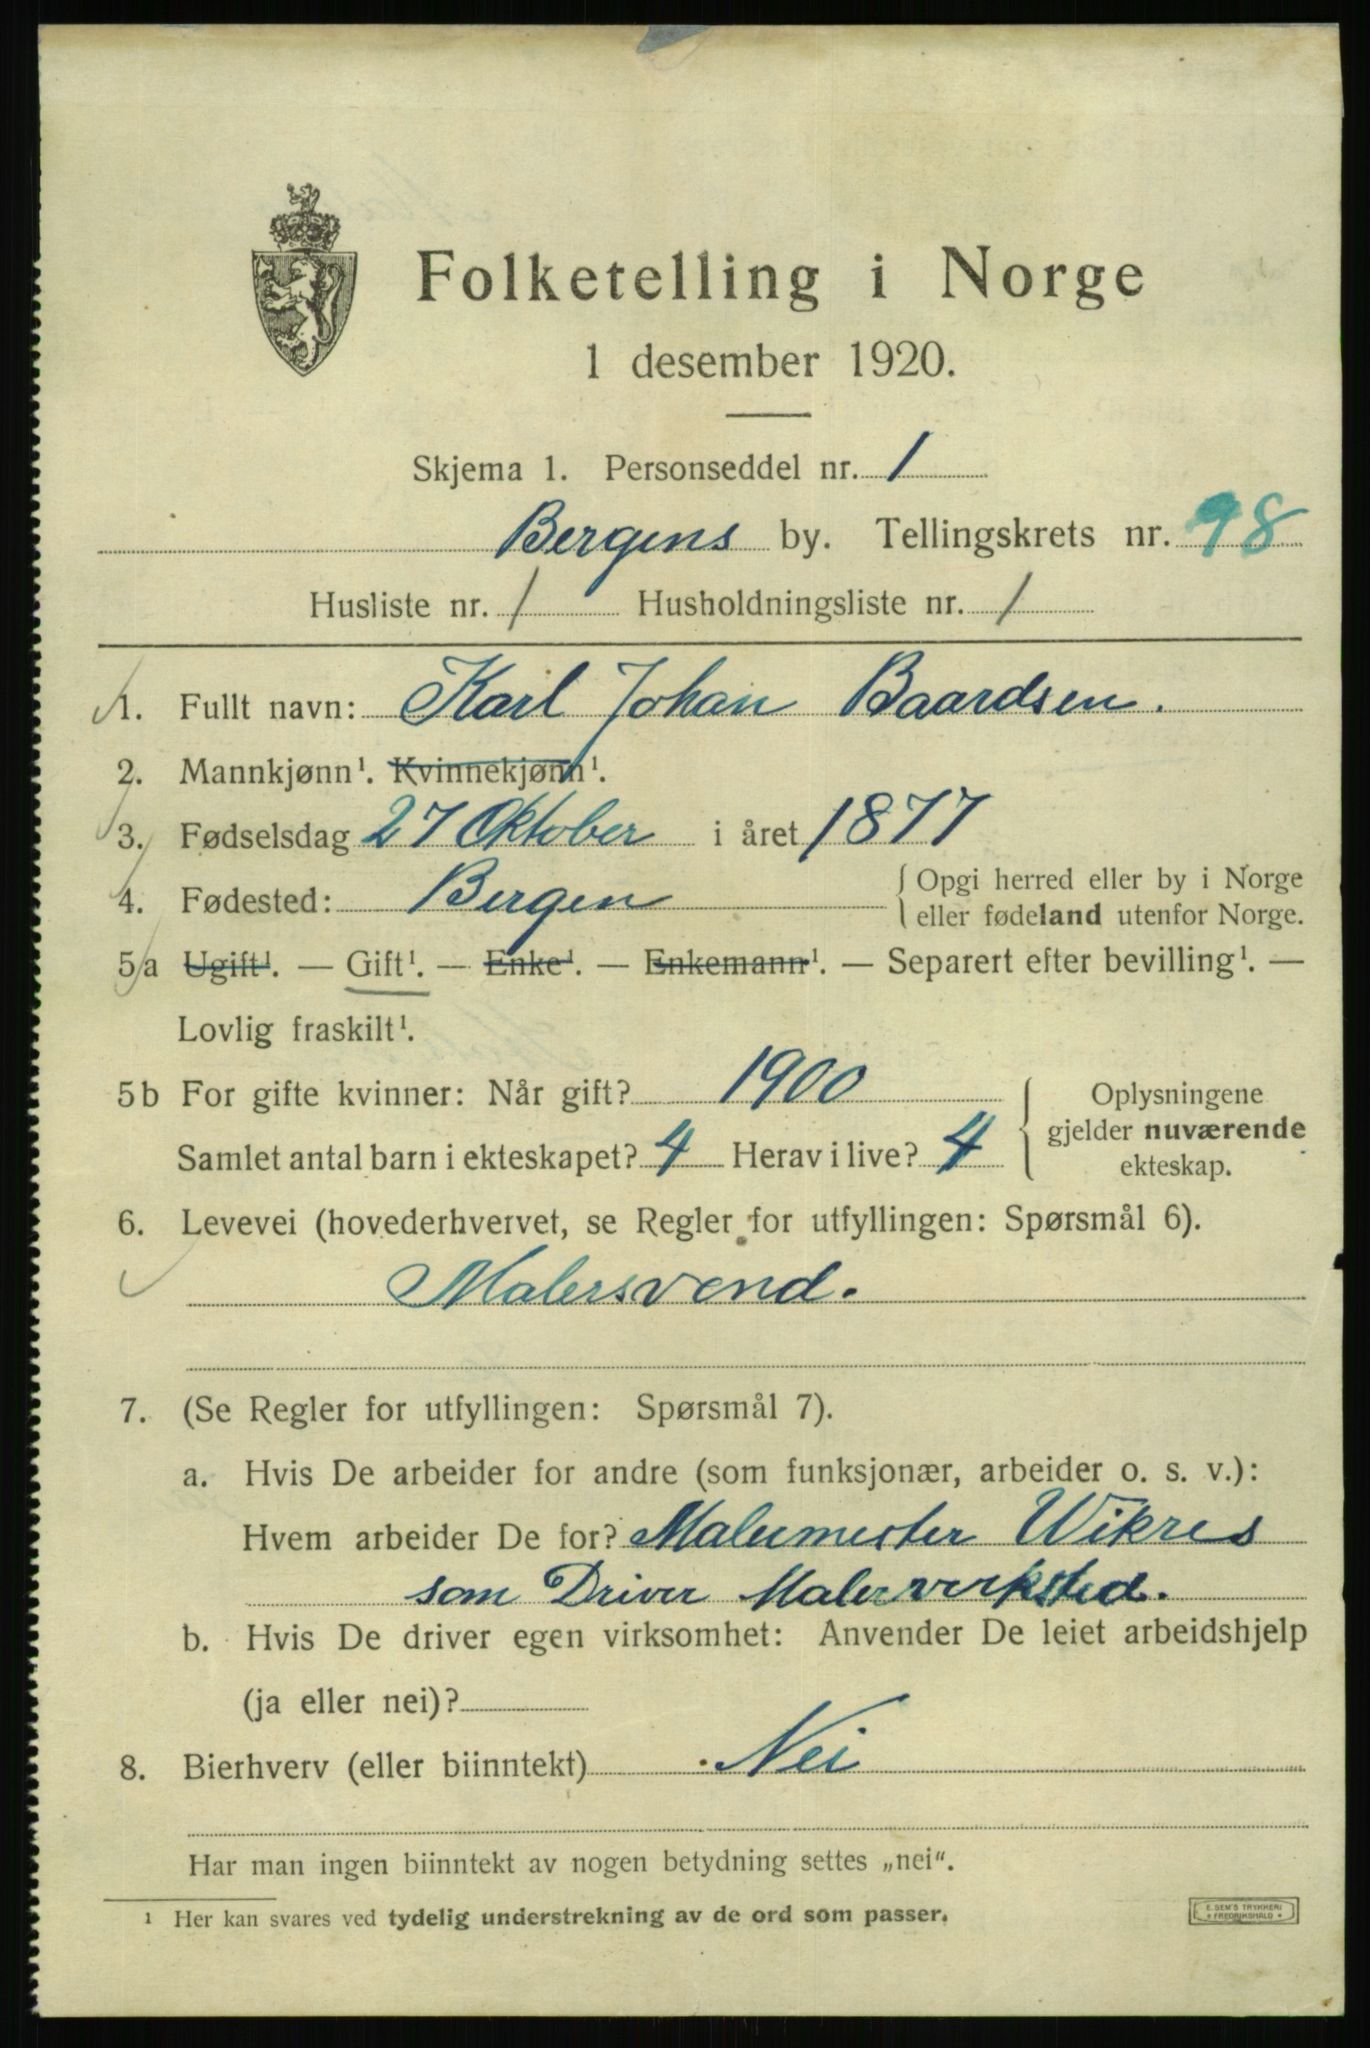 Folketelling i Norge
1 desember 1920.
Skjema 1. Personseddel nr. 1
Bergens by. Tellingskrets nr. 98
Husliste nr. 1 Husholdningsliste nr. 1
1. Fullt navn: Karl Johan Baardsen.
2. Mannkjønn¹. Kvinnekjønn¹.
3. Fødselsdag 27 Oktober i året 1877
4. Fødested: Bergen { Opgi herred eller by i Norge
eller fødeland utenfor Norge.
5a Ugift¹. — Gift¹. — Enke¹. — Enkemann¹. — Separert efter bevilling¹. —
Lovlig fraskilt¹.
5b For gifte kvinner: Når gift? 1900
Samlet antal barn i ekteskapet? 4 Herav i live? 4
Oplysningene
gjelder nuværende
ekteskap.
6. Levevei (hovederhvervet, se Regler for utfyllingen: Spørsmål 6).
Malersvend.
7. (Se Regler for utfyllingen: Spørsmål 7).
a. Hvis De arbeider for andre (som funksjonær, arbeider o. s. v.):
Hvem arbeider De for? Malermester Wikres
som Driver Malerverksted.
b. Hvis De driver egen virksomhet: Anvender De leiet arbeidshjelp
(ja eller nei)?
8. Bierhverv (eller biinntekt) Nei
Har man ingen biinntekt av nogen betydning settes „nei".
¹ Her kan svares ved tydelig understrekning av de ord som passer.
E. SEM'S TRYKKERI
FREDRIKSHALD